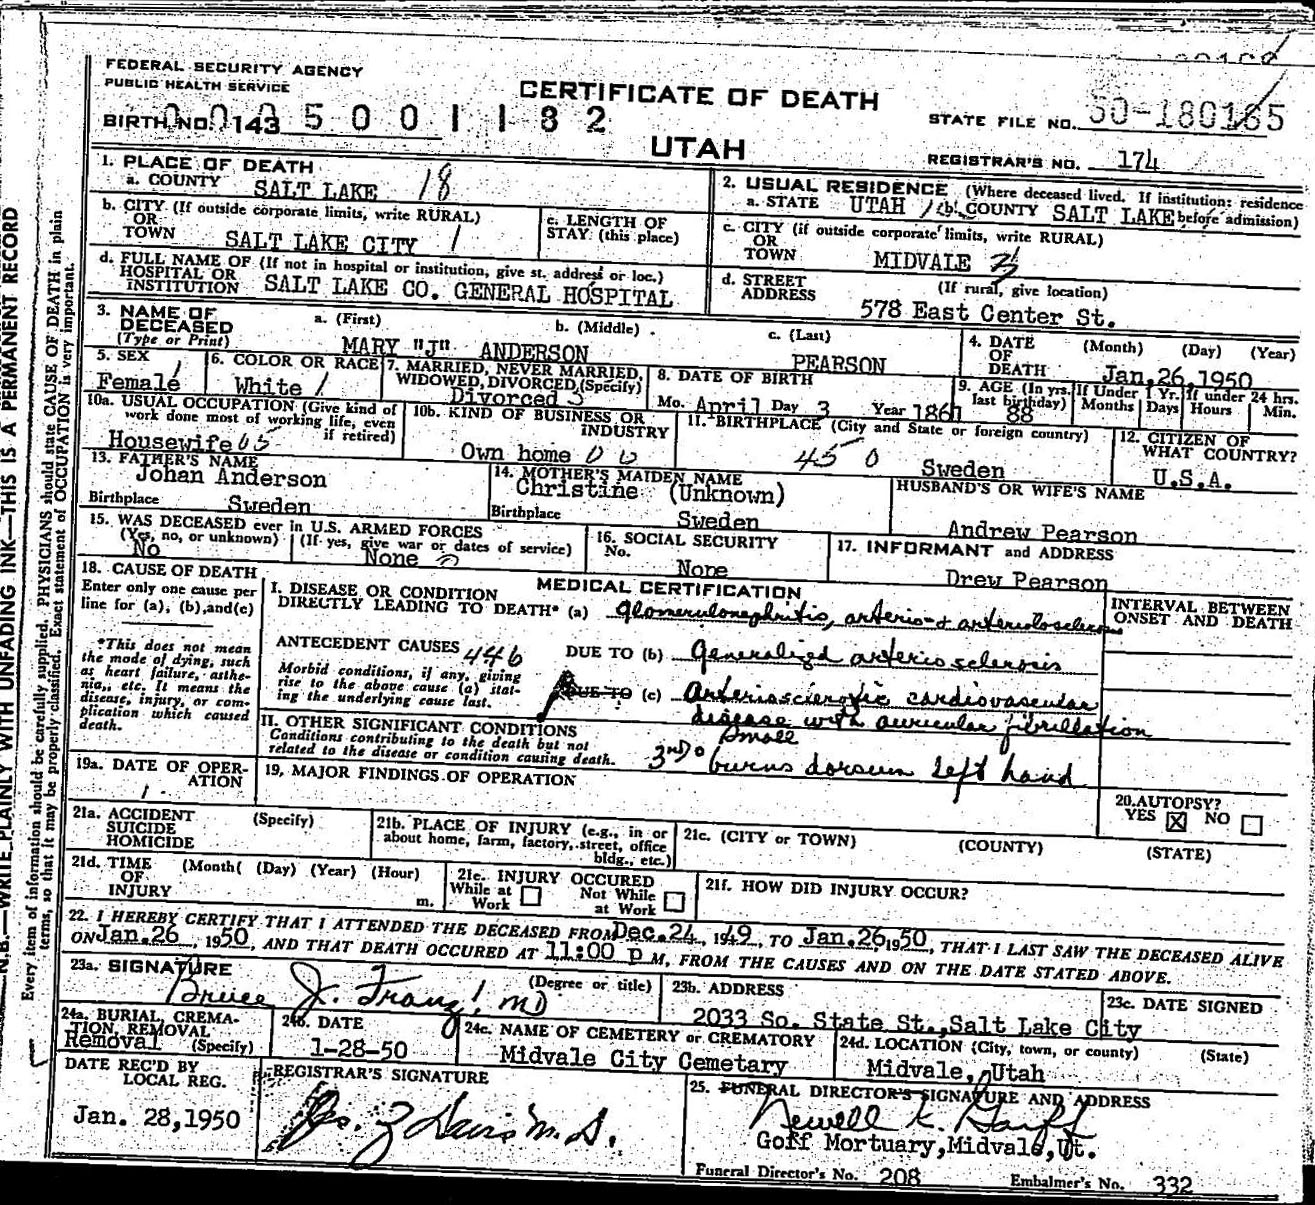 FEDERAL SECURITY AGENCY
PUBLIC HEALTH SERVICE
CERTIFICATE OF DEATH
UTAH
BIRTH NO. 143 5 0 0 1 1 8 2
STATE FILE NO. 50-180165
REGISTRAR'S NO. 174
1. PLACE OF DEATH
a. COUNTY SALT LAKE 18
2. USUAL RESIDENCE (Where deceased lived. If institution: residence before admission)
a. STATE UTAH b. COUNTY SALT LAKE
b. CITY (If outside corporate limits, write RURAL)
OR
TOWN SALT LAKE CITY 1
c. LENGTH OF
STAY (this place)
c. CITY (if outside corporate limits, write RURAL)
OR
TOWN MIDVALE
d. FULL NAME OF (If not in hospital or institution, give st. address or loc.)
HOSPITAL OR
INSTITUTION SALT LAKE CO. GENERAL HOSPITAL
d. STREET
ADDRESS
(If rural, give location)
578 East Center St.
3. NAME OF
DECEASED
(Type or Print)
a. (First) b. (Middle) c. (Last)
MARY "J" ANDERSON PEARSON
4. DATE
OF
DEATH
(Month) (Day) (Year)
Jan.26,1950
5. SEX
Female 1
6. COLOR OR RACE
White 1
7. MARRIED, NEVER MARRIED,
WIDOWED, DIVORCED (Specify)
Divorced
8. DATE OF BIRTH
Mo. April Day 3 Year 1861
9. AGE (In yrs. last birthday)
88
If Under 1 Yr.
Months Days
If under 24 hrs.
Hours Min.
10a. USUAL OCCUPATION (Give kind of
work done most of working life, even
if retired)
Housewife
10b. KIND OF BUSINESS OR
INDUSTRY
Own home
11. BIRTHPLACE (City and State or foreign country)
450 Sweden
12. CITIZEN OF
WHAT COUNTRY?
U.S.A.
13. FATHER'S NAME
Johan Anderson
Birthplace Sweden
14. MOTHER'S MAIDEN NAME
Christine (Unknown)
Birthplace Sweden
HUSBAND'S OR WIFE'S NAME
Andrew Pearson
15. WAS DECEASED ever in U.S. ARMED FORCES
(Yes, no, or unknown) (If yes, give war or dates of service)
No None
16. SOCIAL SECURITY
No.
None
17. INFORMANT and ADDRESS
Drew Pearson
18. CAUSE OF DEATH
Enter only one cause per
line for (a), (b),and(c)
*This does not mean
the mode of dying, such
as heart failure, asthe-
nia,, etc. It means the
disease, injury, or com-
plication which caused
death.
MEDICAL CERTIFICATION
I. DISEASE OR CONDITION
DIRECTLY LEADING TO DEATH* (a) Glomerulonephritis, arterio- & arteriolosclerosis
INTERVAL BETWEEN
ONSET AND DEATH
ANTECEDENT CAUSES 446
Morbid conditions, if any, giving
rise to the above cause (a) stat-
ing the underlying cause last.
DUE TO (b) Generalized arteriosclerosis
DUE TO (c) Arteriosclerotic cardiovascular
disease with auricular fibrillation
II. OTHER SIGNIFICANT CONDITIONS
Conditions contributing to the death but not
related to the disease or condition causing death.
Small
3rd° burns dorsum left hand
19a. DATE OF OPER-
ATION
19, MAJOR FINDINGS OF OPERATION
20.AUTOPSY?
YES ☒ NO ☐
21a. ACCIDENT
SUICIDE
HOMICIDE
(Specify)
21b. PLACE OF INJURY (e.g., in or
about home, farm, factory, street, office
bldg., etc.)
21c. (CITY or TOWN) (COUNTY) (STATE)
21d. TIME
OF
INJURY
(Month( (Day) (Year) (Hour)
m.
21e. INJURY OCCURED
While at
Work ☐
Not While
at Work ☐
21f. HOW DID INJURY OCCUR?
22. I HEREBY CERTIFY THAT I ATTENDED THE DECEASED FROM Dec.24, 1949, TO Jan.26 1950, THAT I LAST SAW THE DECEASED ALIVE
ON Jan.26, 1950, AND THAT DEATH OCCURED AT 11:00 p M., FROM THE CAUSES AND ON THE DATE STATED ABOVE.
23a. SIGNATURE
(Degree or title)
Bruce J. MD
23b. ADDRESS
2033 So. State St.,Salt Lake City
23c. DATE SIGNED
24a. BURIAL, CREMA-
TION, REMOVAL
Removal (Specify)
24b. DATE
1-28-50
24c. NAME OF CEMETERY or CREMATORY
Midvale City Cemetary
24d. LOCATION (City, town, or county) (State)
Midvale, Utah
DATE REC'D BY
LOCAL REG.
Jan. 28,1950
REGISTRAR'S SIGNATURE
25. FUNERAL DIRECTOR'S SIGNATURE AND ADDRESS
Newell K.
Goff Mortuary,Midvale,Ut.
Funeral Director's No. 208 Embalmer's No. 332
N.B.—WRITE PLAINLY WITH UNFADING INK—THIS IS A PERMANENT RECORD
Every item of information should be carefully supplied. PHYSICIANS should state CAUSE OF DEATH in plain
terms, so that it may be properly classified. Exact statement of OCCUPATION is very important.